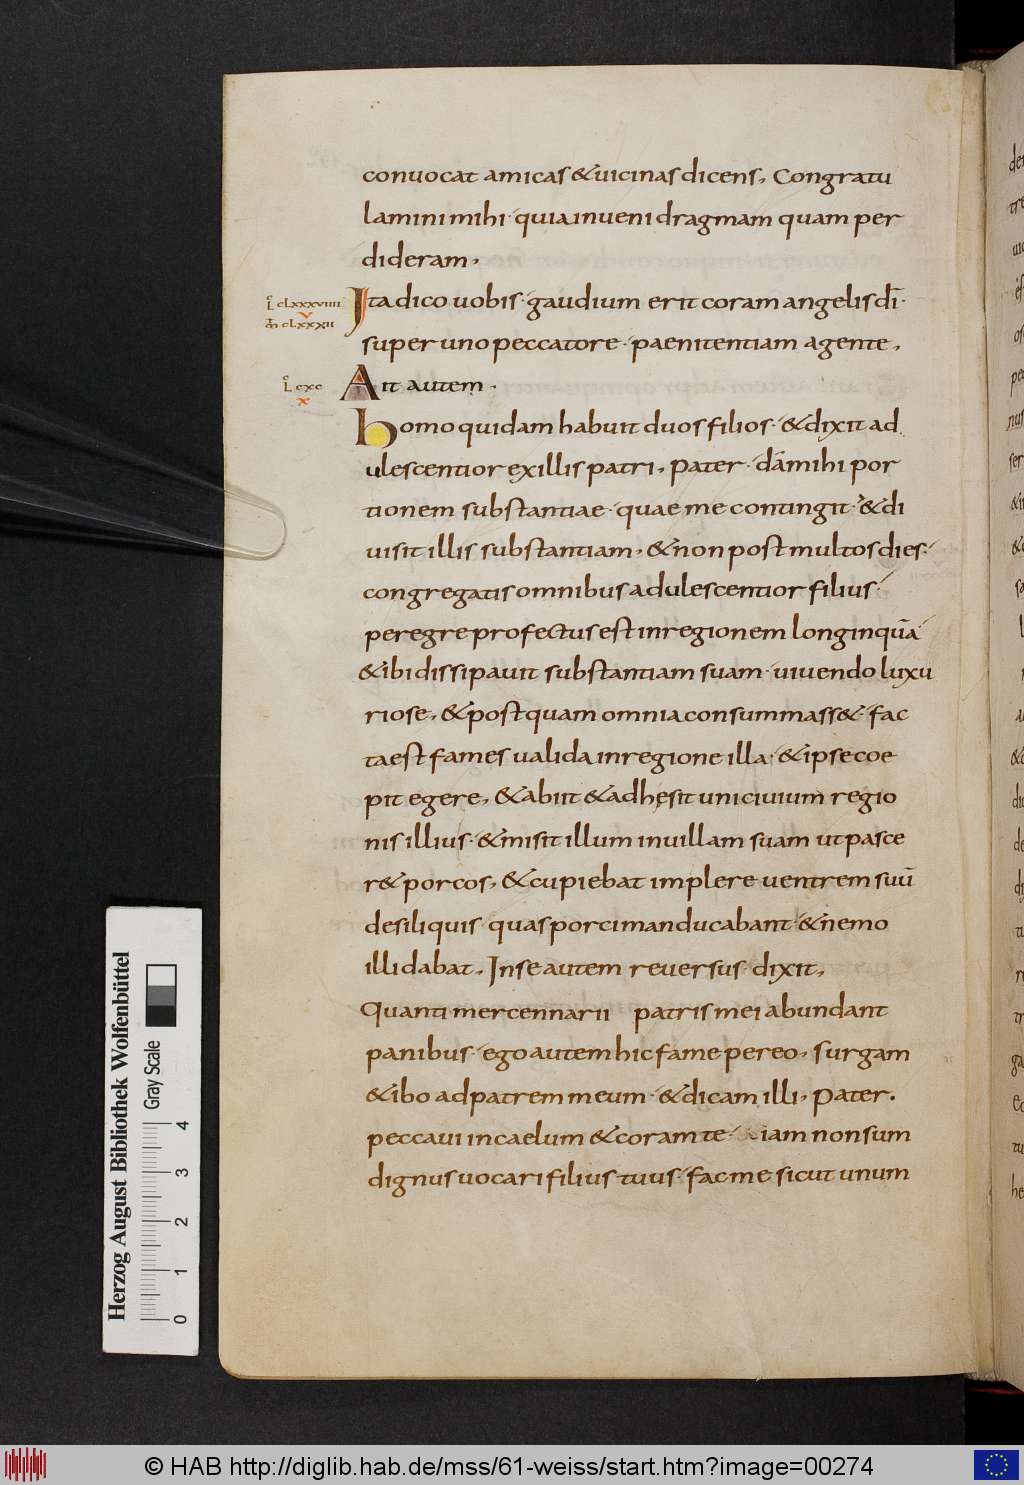 convocat amicas & uicinas dicens, Congratu
lamini mihi · quia inveni dragmam quam per
dideram,
L̊ CLXXXVIIII Ita dico uobis · gaudium erit coram angelis dī ·
V
m̄ CLXXXII super uno peccatore · paenitentiam agente,
L̊ CXC Ait autem ·
X
homo quidam habuit duos filios · & dixit ad
ulescentior ex illis patri, Pater · dā mihi por
tionem substantiae · quae me contingit · & di
uisit illis substantiam, & non post multos dies ·
congregatis omnibus adulescentior filius ·
peregre profectus est in regionem longinquā ·
& ibi dissipavit substantiam suam · uivendo luxu
riose, & postquam omnia consummass& · fac
ta est fames valida in regione illa · & ipse coe
pit egere, & abiit & adhęsit uni civium regio
nis illius · & misit illum in uillam suam ut pasce
r& porcos, & cupiebat implere ventrem suū
de siliquis · quas porci manducabant · & nemo
illi dabat, In se autem reuersus · dixit,
Quanti mercennarii patris mei abundant
panibus · ego autem hic fame pereo, surgam
& ibo ad patrem meum · & dicam illi, Pater ·
peccavi in caelum & coram te · iam non sum
dignus uocari filius tuus · fac me sicut unum
Herzog August Bibliothek Wolfenbüttel
Gray Scale
0 1 2 3 4
© HAB http://diglib.hab.de/mss/61-weiss/start.htm?image=00274